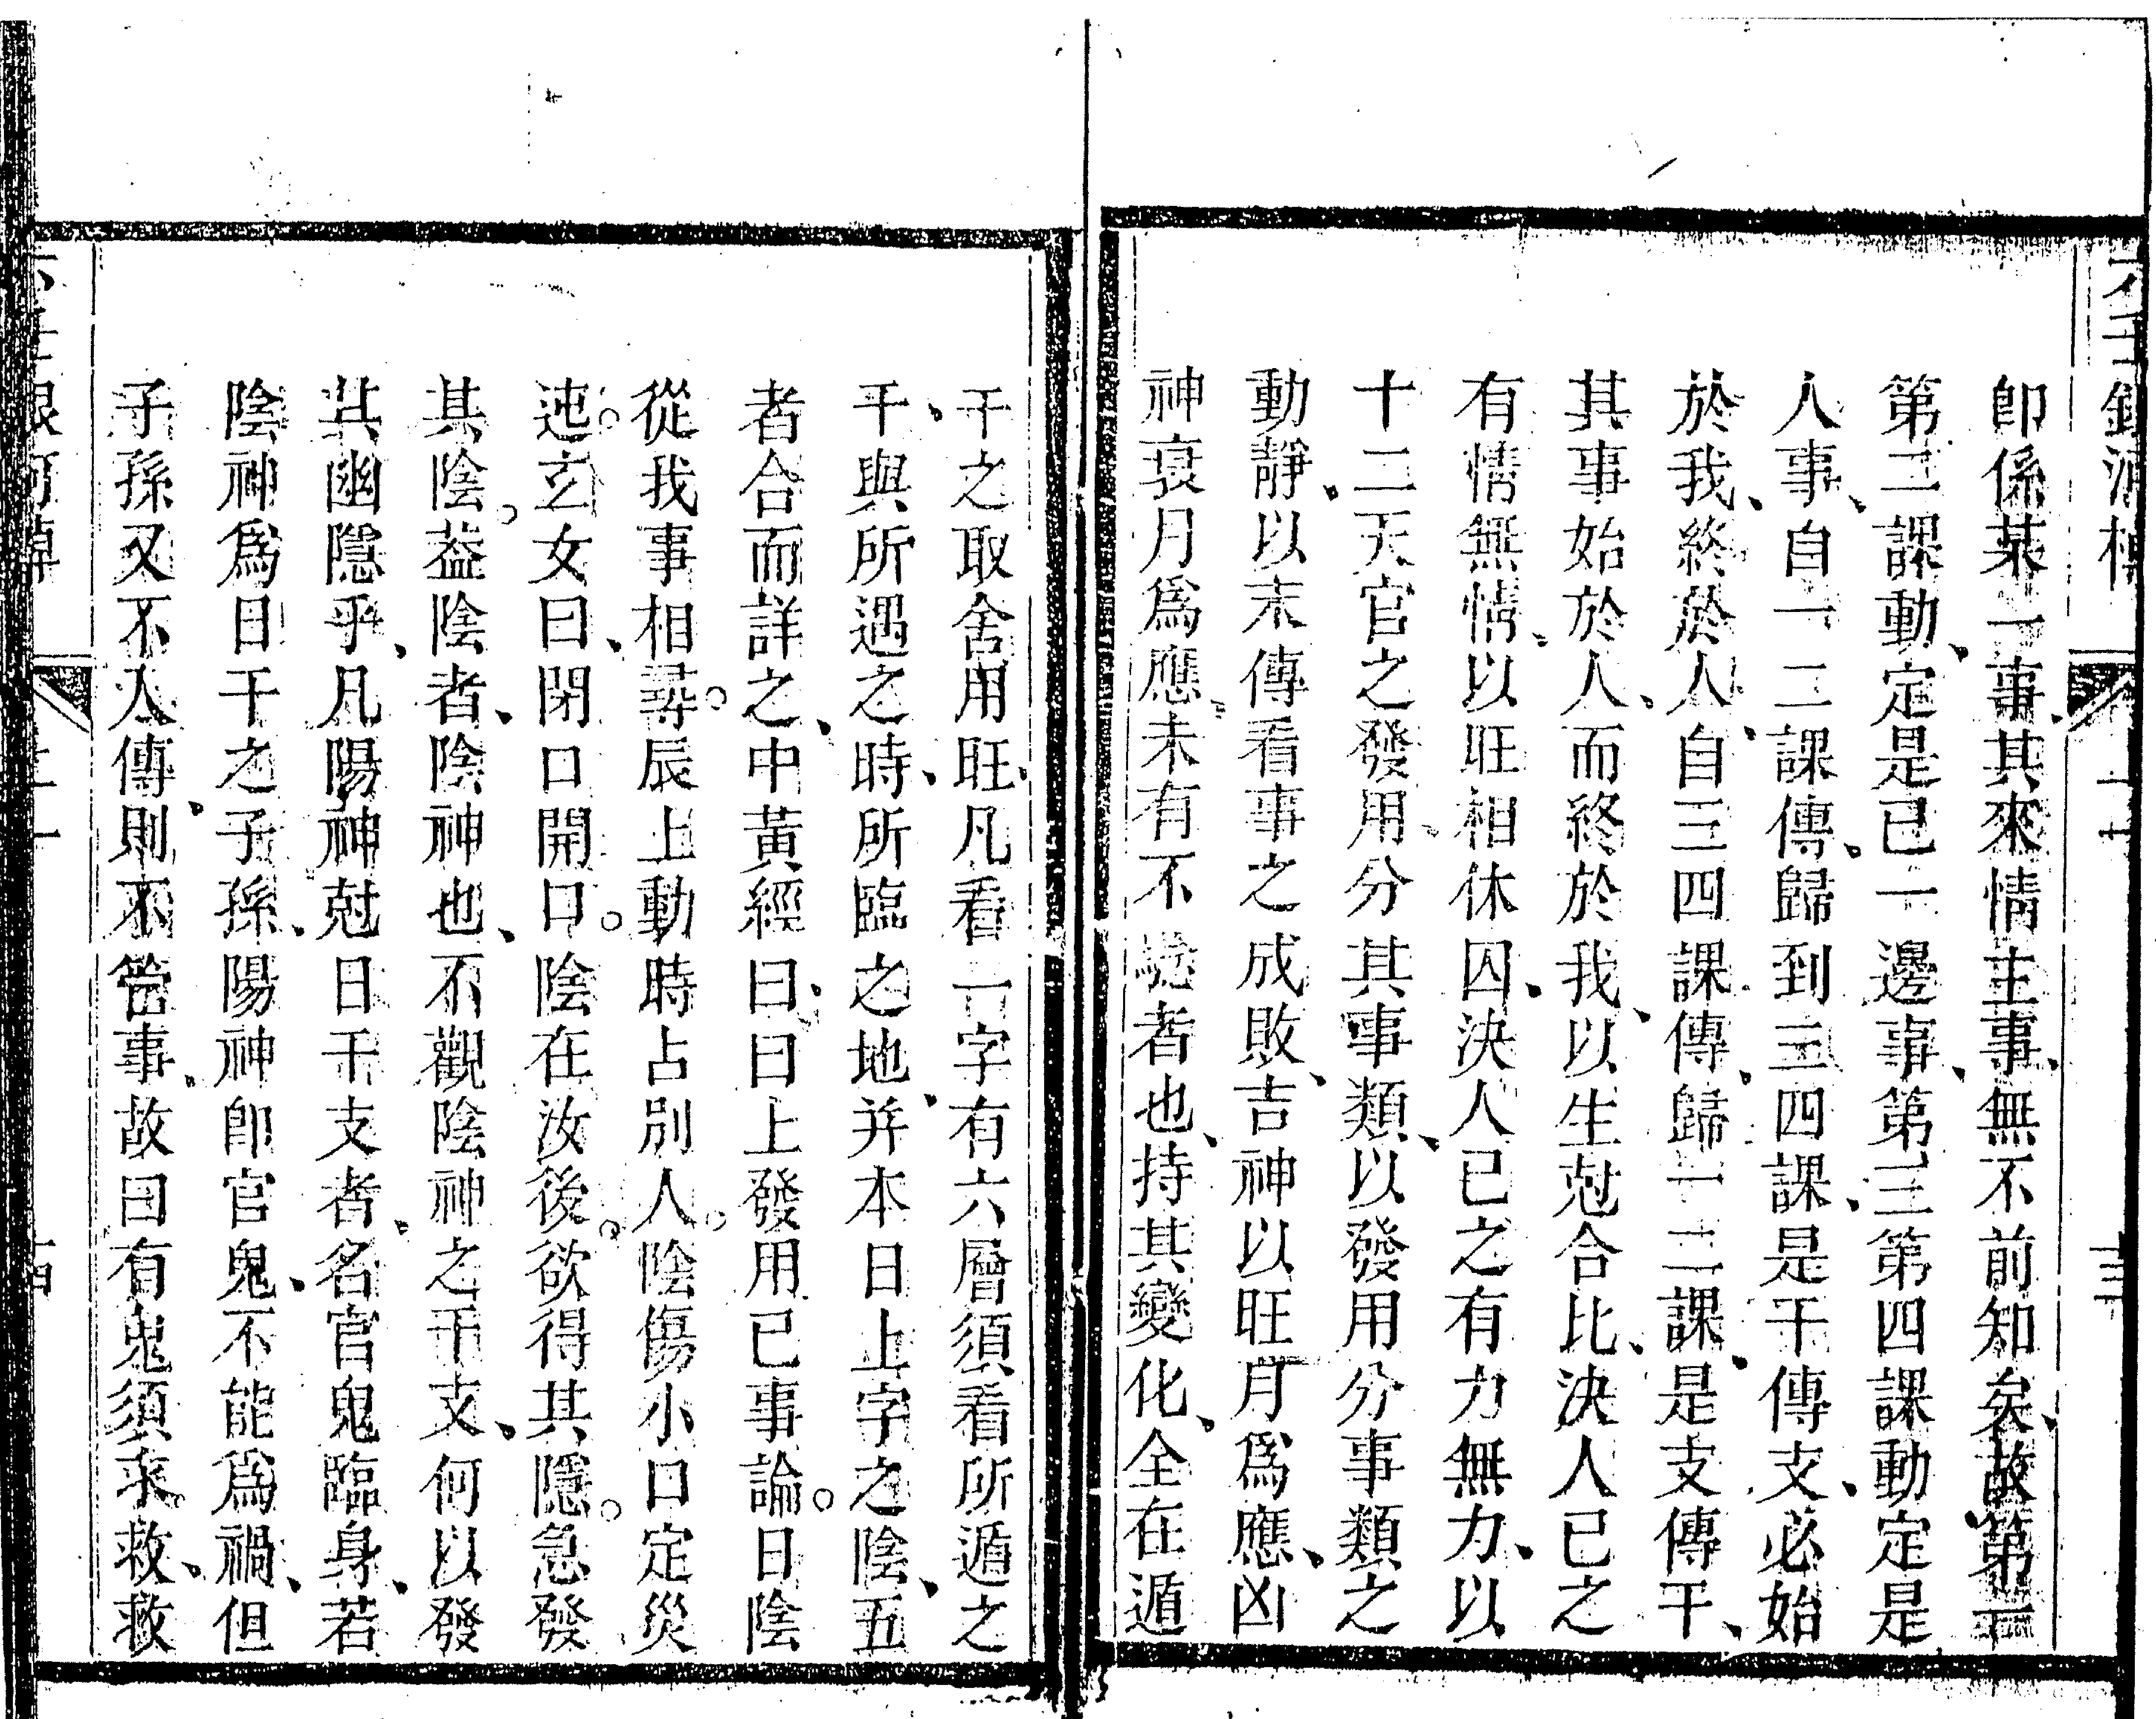 即係某一事、其來情主事、無不前知矣、故第一
第二課動、定是已一邊事、第三第四課動定是
人事、自一二課傳、歸到三四課、是干傳支、必始
於我、終於人、自三四課傳、歸一二課、是支傳干、
其事始於人、而終於我、以生尅合比、決人已之
有情無情、以旺相休囚、決人已之有力無力、以
十二天官之發用、分其事類、以發用分事類之
動靜、以末傳看事之成敗、吉神以旺月爲應、凶
神衰月爲應、未有不 者也、持其變化、全在遁
干之取舍用旺、凡看一字有六層須看所遁之
干、與所遇之時、所臨之地、并本日上字之陰、五
者合而詳之、中黃經曰、日上發用已事論。日陰
從我事相尋。辰上動時占別人。陰傷小口定災
迍。玄女曰、閉口開口。陰在汝後。欲得其隱。急發
其陰。葢陰者、陰神也、不觀陰神之干支、何以發
其幽隱乎、凡陽神尅日干支者、名官鬼臨身、若
陰神爲日干之子孫、陽神即官鬼、不能爲禍、但
子孫又不入傳、則不管事、故曰有鬼須求救、救